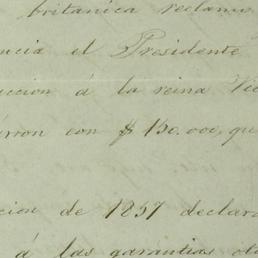 britanica reclamó
encia el Presidente
accion á la reina Vic
aron con $ 150.000, qu
cion de 1857 declara
á las garantias oto